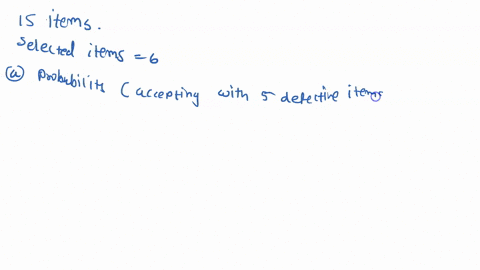 15 items.
Selected items = 6
(a) Probability (accepting with 5 defective items